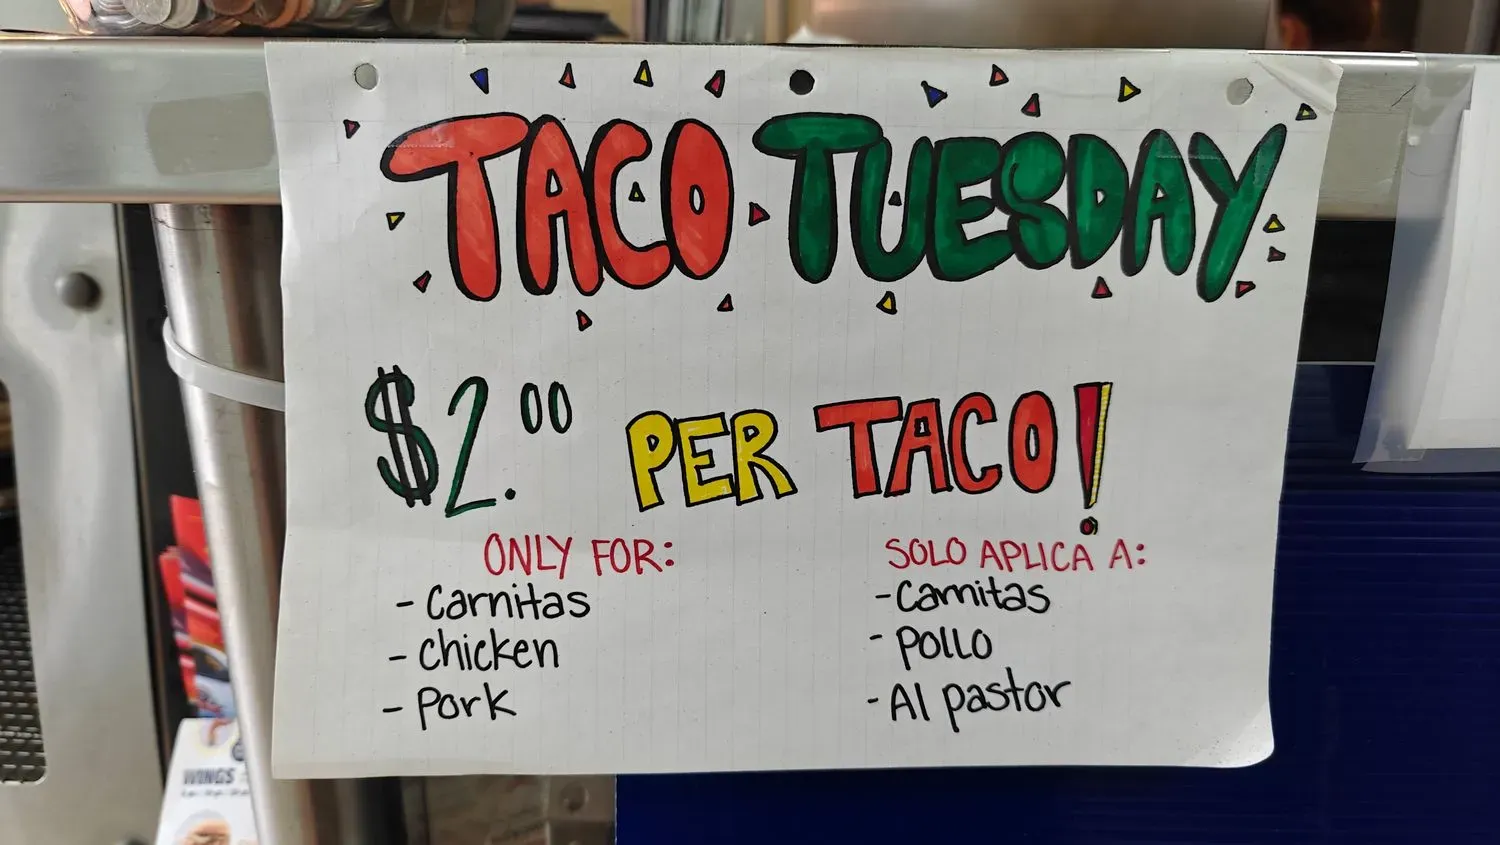 TACO TUESDAY
$2.00 PER TACO!
ONLY FOR:
- Carnitas
- Chicken
- Pork
SOLO APLICA A:
- Carnitas
- Pollo
- Al pastor
WINGS